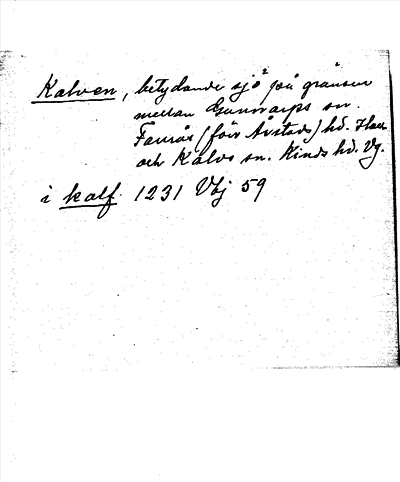 Kalven, betydande sjö på gränsen
mellan Gunnarps sn.
Faurås (förr Årstads) hd. Hall
och Kalvs sn. Kinds hd. Vg.
i kalf. 1231 Vbj 59